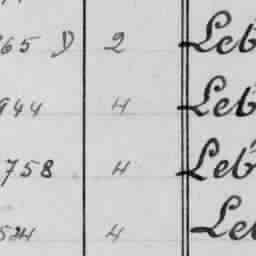 65 D 2 Leb
944 4 Leb
758 4 Leb
524 4 Le